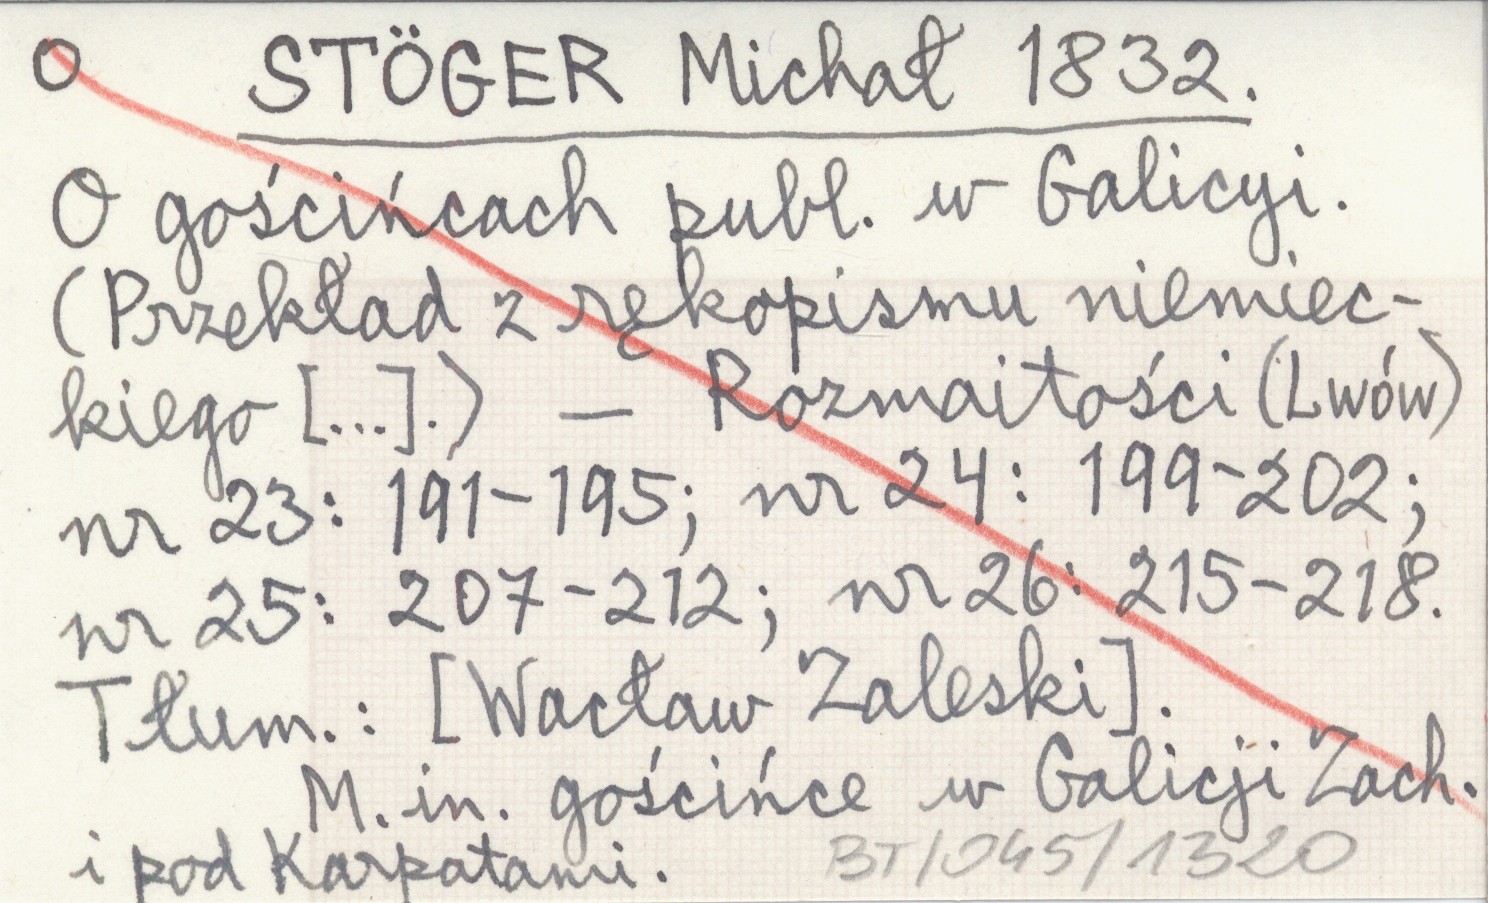 O STÖGER Michał 1832.
O gościńcach publ. w Galicyi.
(Przekład z rękopismu niemiec-
kiego [...].) — Rozmaitości (Lwów)
nr 23: 191-195; nr 24: 199-202;
nr 25: 207-212; nr 26: 215-218.
Tłum.: [Wacław Zaleski].
M. in. gościńce w Galicji Zach.
i pod Karpatami. BT/045/1320